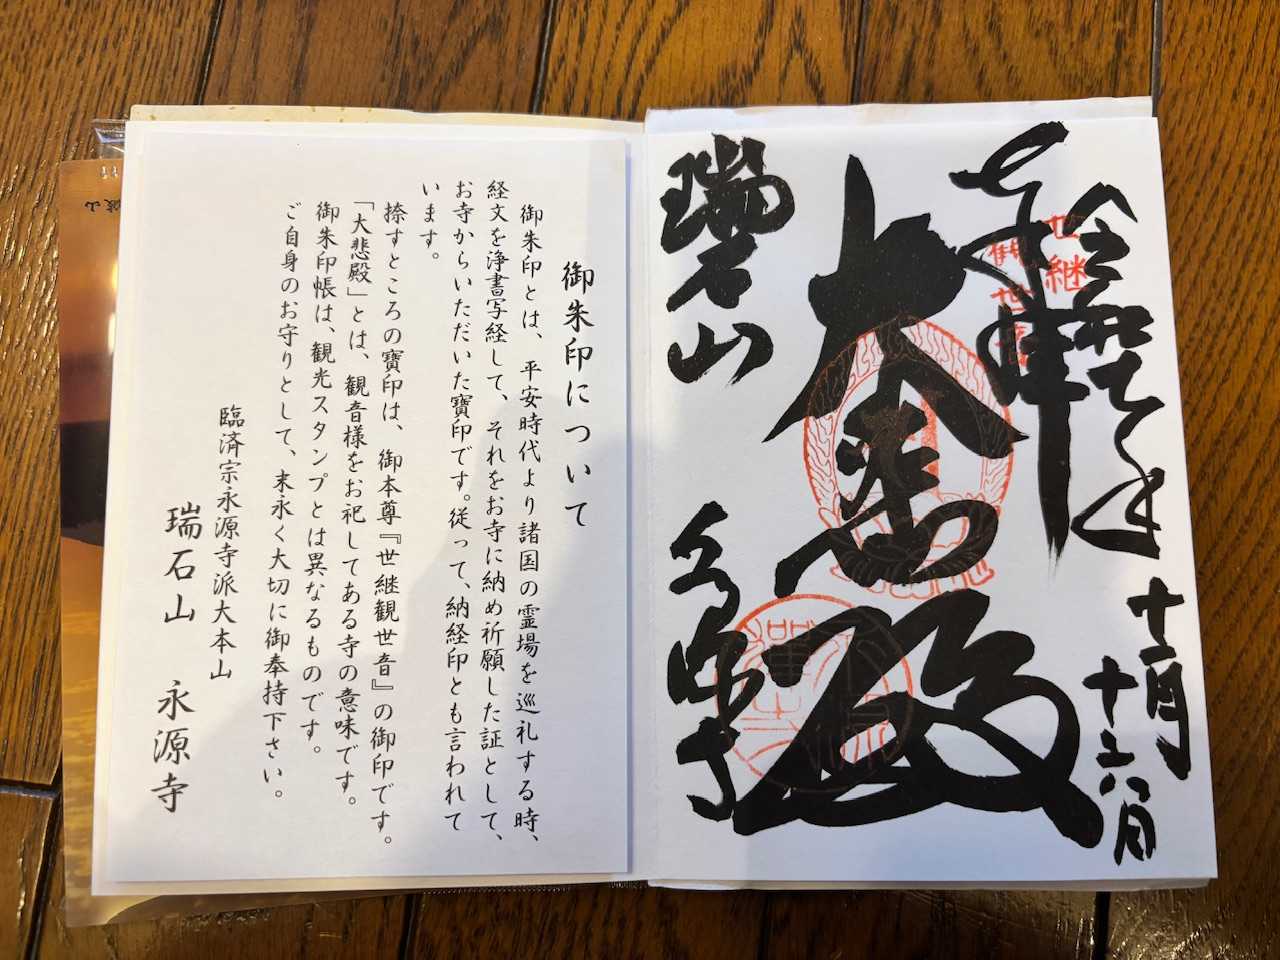 奉拝
令和
年
十一月
十六日
世継
観世
大悲殿
瑞石山
永源寺
御朱印について
御朱印とは、平安時代より諸国の霊場を巡礼する時、
経文を浄書写経して、それをお寺に納め祈願した証として、
お寺からいただいた寶印です。従って、納経印とも言われて
います。
捺すところの寶印は、御本尊『世継観世音』の御印です。
「大悲殿」とは、観音様をお祀してある寺の意味です。
御朱印帳は、観光スタンプとは異なるものです。
ご自身のお守りとして、末永く大切に御奉持下さい。
臨済宗永源寺派大本山
瑞石山 永源寺